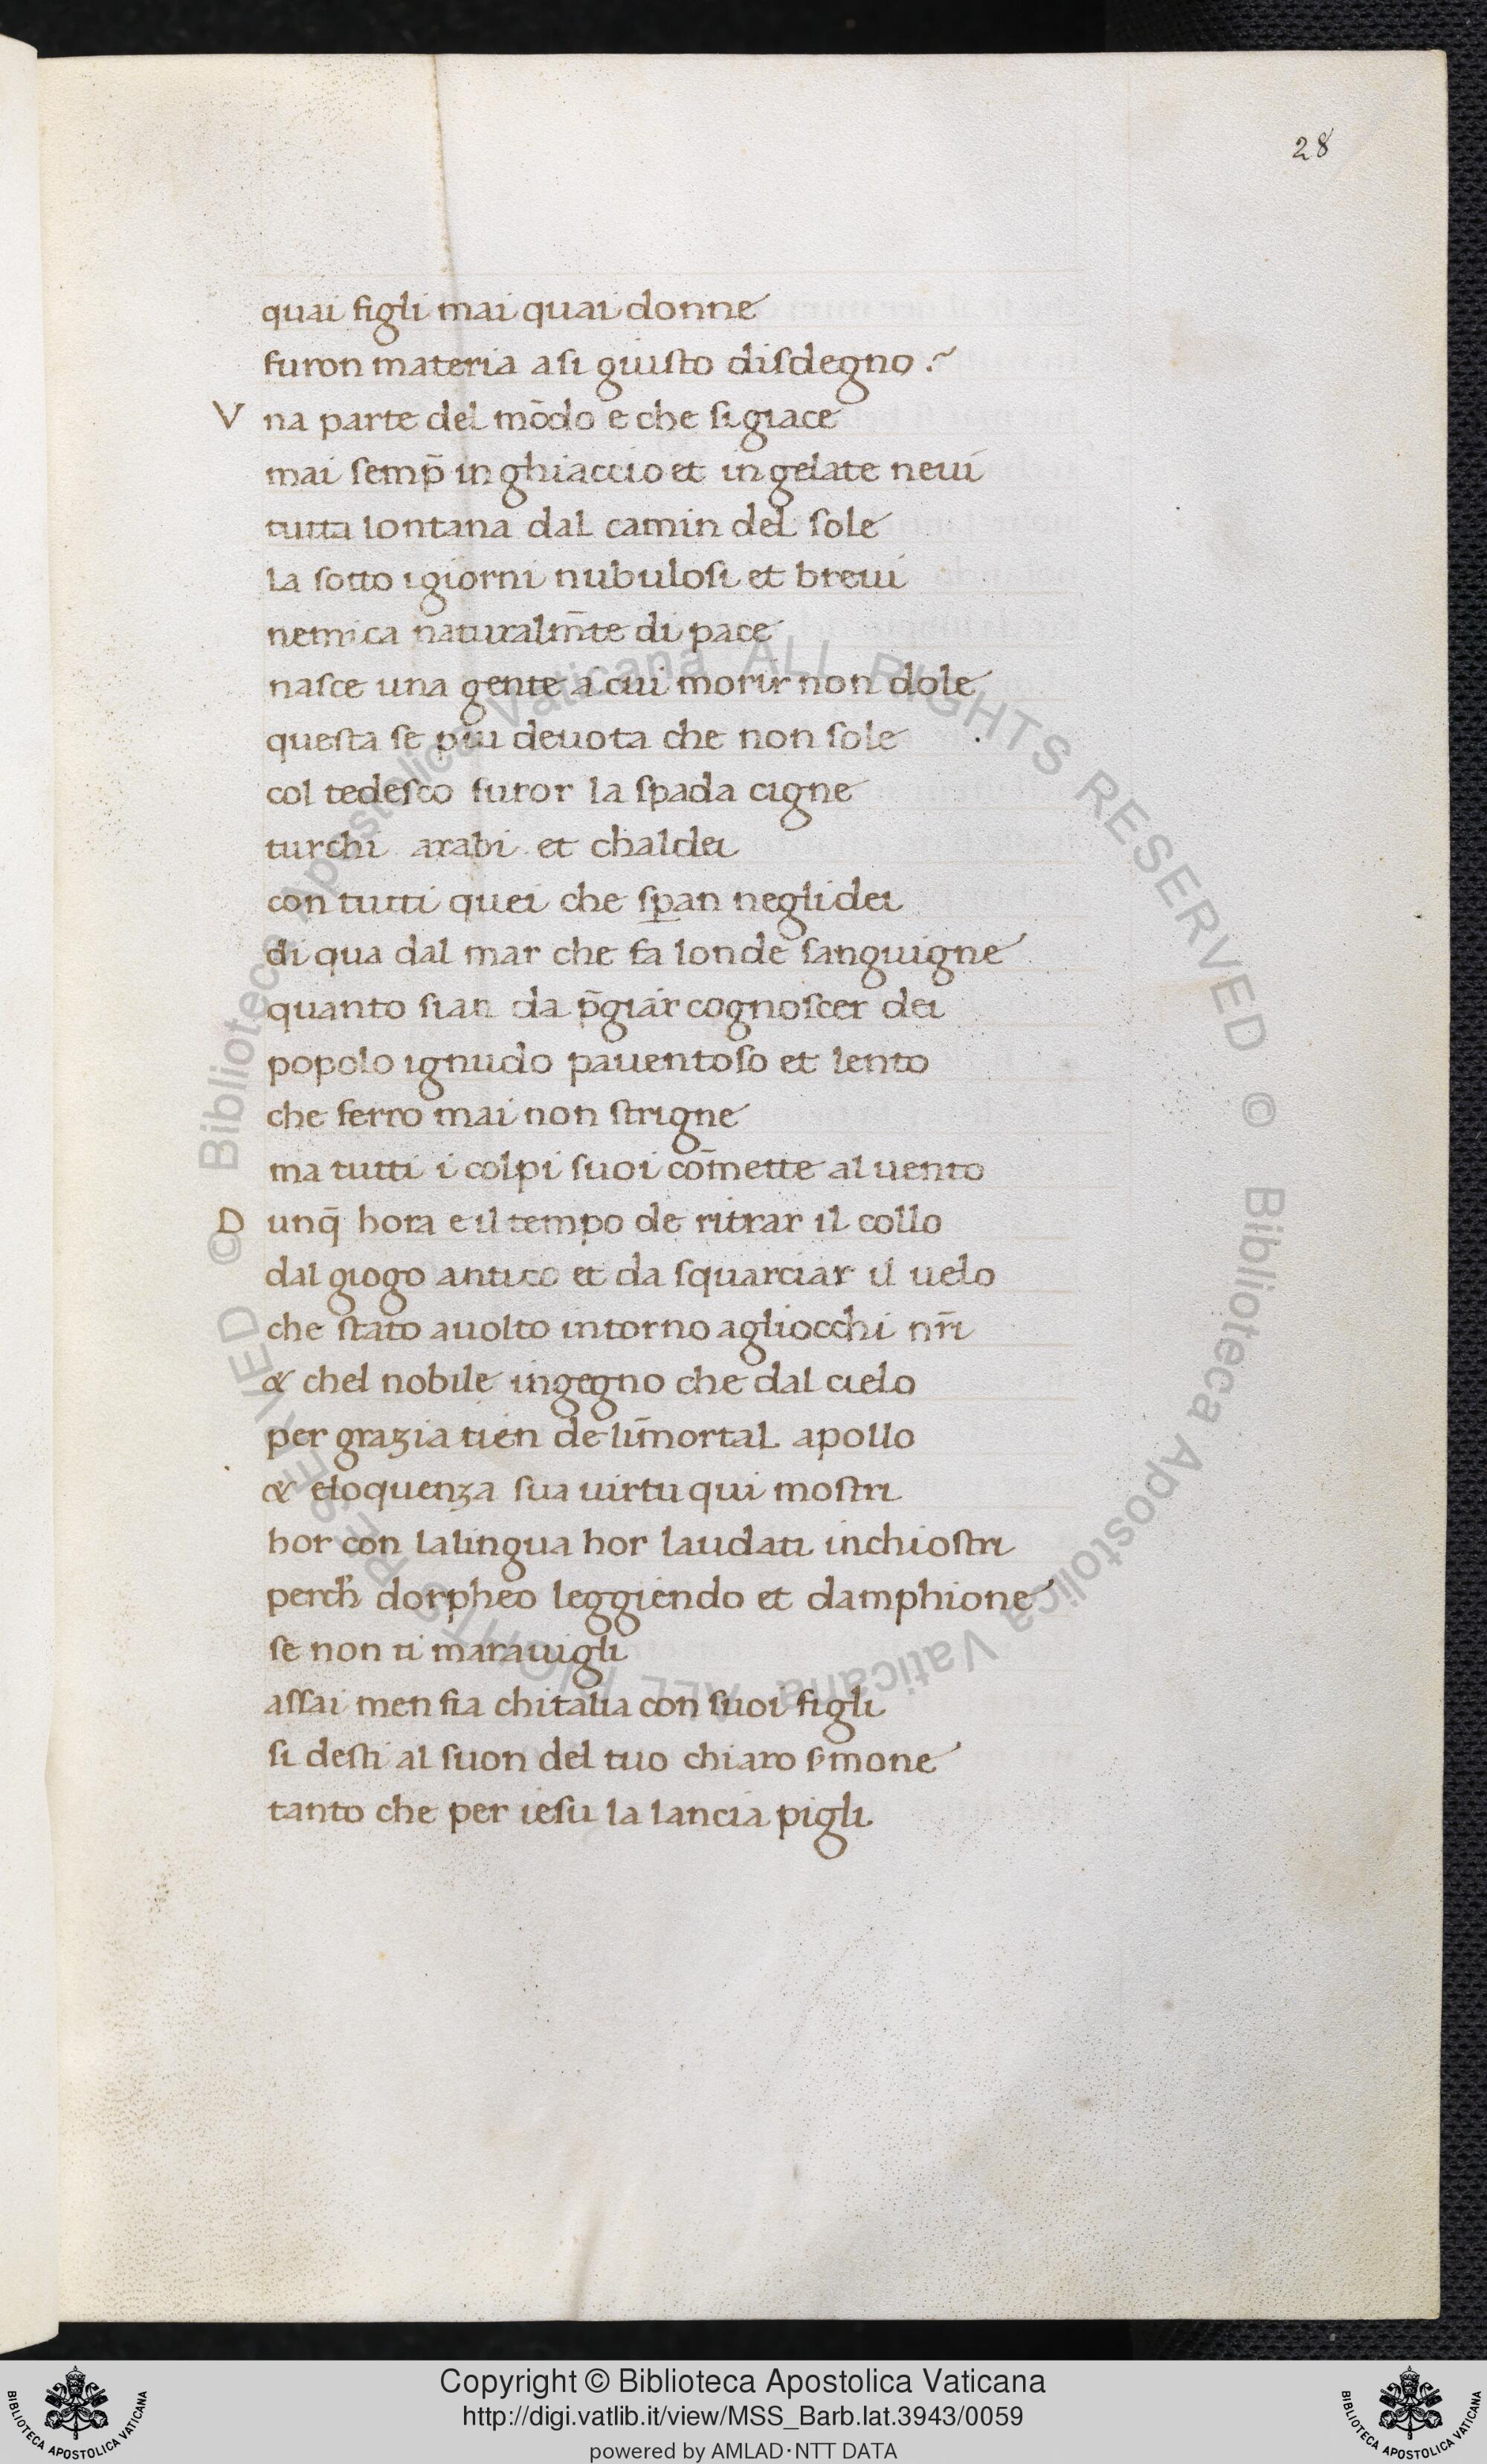 28
quai figli mai quai donne
furon materia asi giusto disdegno?
Vna parte del mōdo e che si giace
mai semp̄ in ghiaccio et in gelate neui
tutta lontana dal camin del sole
la sotto igiorni nubulosi et breui
nemica naturalm̄te di pace
nasce una gente a cui morir non dole
questa se piu deuota che non sole
col tedesco furor la spada cigne
turchi arabi et chaldei
con tutti quei che sꝑan neglidei
di qua dal mar che fa londe sanguigne
quanto sian da p̄giar cognoscer dei
popolo ignudo pauentoso et lento
che ferro mai non strigne
ma tutti i colpi suoi com̄ette al uento
Dunq̄ hora e il tempo de ritrar il collo
dal giogo antico et da squarciar il uelo
che stato auolto intorno agliocchi nr̄i
& chel nobile ingegno che dal cielo
per grazia tien de lim̄ortal apollo
& eloquenza sua uirtu qui mostri
hor con lalingua hor laudati inchiostri
perch̄ dorpheo leggiendo et damphione
se non ti marauigli
assai men fia chitalia con suoi figli
si desti al suon del tuo chiaro s̄mone
tanto che per iesu la lancia pigli
Biblioteca Apostolica Vaticana ALL RIGHTS RESERVED ©
Biblioteca Apostolica Vaticana ALL RIGHTS RESERVED ©
Copyright © Biblioteca Apostolica Vaticana
http://digi.vatlib.it/view/MSS_Barb.lat.3943/0059
powered by AMLAD·NTT DATA
BIBLIOTECA APOSTOLICA VATICANA
BIBLIOTECA APOSTOLICA VATICANA